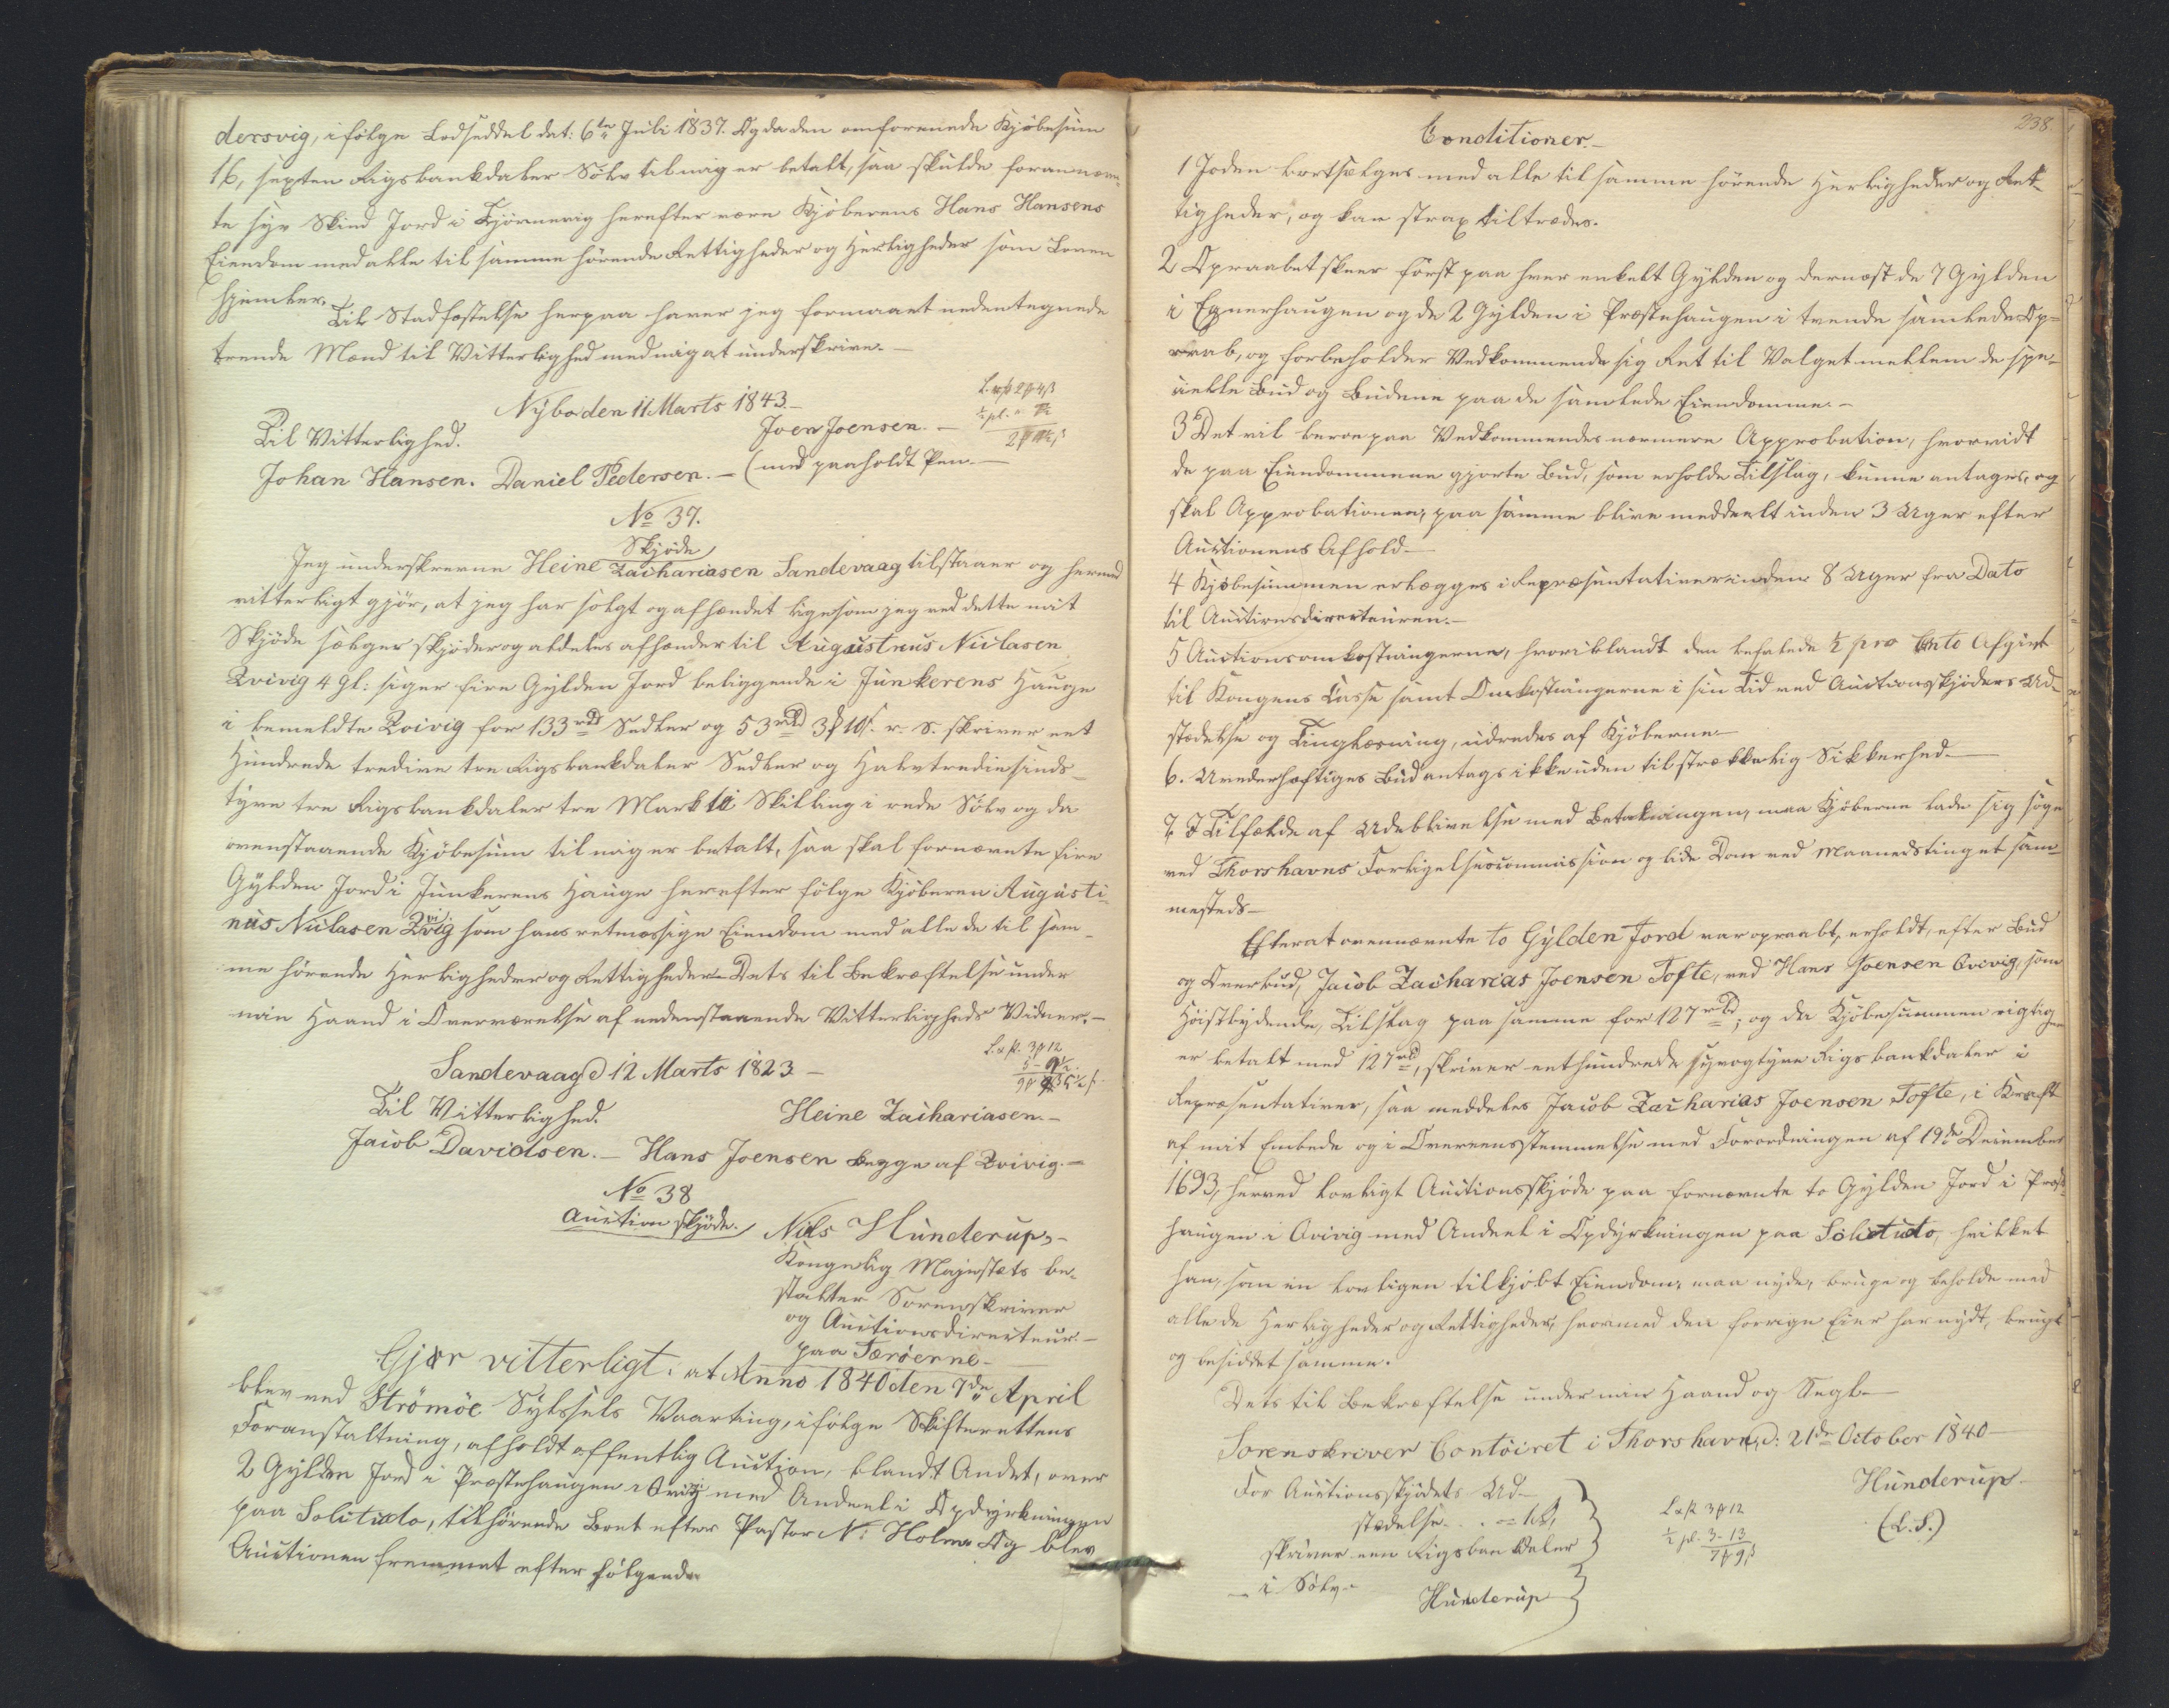 dersvig, ifølge Lodseddel dat: 6te Juli 1837. Og da den omforenede Kjøbesum
16, sexten Rigsbankdaler Sølv til mig er betalt, saa skulde forannævn-
te syv Skind Jord i Fjørnevig herefter være Kjøberens Hans Hansens
Eiendom med alle til samme hørende Rettigheder og Herligheder som Loven
hjemler.
Til Stadfæstelse herpaa haver jeg formaaet nedentegnede
tvende Mænd til Vitterlighed med mig at underskrive.—
Nÿbo den 11 Marts 1843.—
Til Vitterlighed. Joen Joensen.—
Johan Hansen. Daniel Pedersen.— (med paaholdt Pen.—
No 37.
Skjøde
Jeg underskrevne Heine Zachariasen Sandevaag tilstaaer og hermed
vitterligt gjør, at jeg har solgt og afhændet ligesom jeg ved dette mit
Skjøde sælger skjøder og aldeles afhænder til Augustinus Niclasen
Qvivig 4 Gl: siger fire Gylden Jord beliggende i Junkerens Hauge
i bemeldte Qvivig for 133 rbd Sedler og 53 rbd 3 ₰ 10 s. r. S. skriver eet
Hundrede tredive tre Rigsbankdaler Sedler og Halvtrediesinds-
tyve tre Rigsbankdaler tre Mark ti Skilling i rede Sølv og da
ovenstaaende Kjøbesum til mig er betalt, saa skal fornævnte fire
Gylden Jord i Junkerens Hauge herefter følge Kjøberen Augusti-
nus Niclasen Qvivig som hans retmæssige Eiendom med alle de til sam-
me hørende Herligheder og Rettigheder. Dets til Bekræftelse under
min Haand i Overværelse af nedenstaaende Vitterligheds Vidner.—
Sandevaag d 12 Marts 1823—
L & ₰. 3 ₰ 12
Til Vitterlighed. Heine Zachariasen.—
Jacob Davidsen.— Hans Joensen begge af Qvivig.—
No 38
Auction skjøde.
Niels Hunderup,—
Kongelig Majestæts be-
stalter Sorenskriver
og Auctionsdirecteur—
paa Færøerne—
Gjør vitterligt: at Anno 1840 den 7de April
blev ved Strömöe Syssels Vaarting, ifølge Skifterettens
Foranstaltning, afholdt offentlig Auction, blandt Andet, over
2 Gylden Jord i Præstehaugen i Qvivig med Andeel i Opdyrkningen
paa Solitudo, tilhørende Boet efter Pastor N: Holm. Og blev
Auctionen fremmet efter følgende
238
Conditioner.—
1 Joden bortsælges med alle til samme hørende Herligheder og Ret-
tigheder, og kan strax tiltrædes.
2 Opraabet skeer først paa hver enkelt Gylden og dernæst de 7 Gylden
i Egnerhaugen og de 2 Gylden i Præstehaugen i tvende samlede Op-
raab, og forbeholder Vedkommende sig Ret til Valget mellem de spe-
cielle Bud og Budene paa de samlede Eiendomme.—
3 Det vil beroe paa Vedkommendes nærmere Approbation, hvorvidt
de paa Eiendommene gjorte Bud, som erholde Tilslag, kunne antages, og
skal Approbationen, paa samme blive meddeelt inden 3 Uger efter
Auctionens Afhold—
4 Kjøbesummen erlægges i Repræsentativer inden 8 Uger fra Dato
til Auctionsdirecteuren.—
5 Auctionsomkostningerne, hvoriblandt den befalede ½ pro Cento Afgivt
til Kongens Casse samt Omkostningerne i sin Tid ved Auctionsskjøders Ud-
stædelse og Tinglæsning, udredes af Kjøberne—
6. Uvederhæftiges Bud antages ikke uden tilstrækkelig Sikkerhed.—
7. I Tilfælde af Udeblivelse med Betalningen, maa Kjøberne lade sig søge
ved Thorshavns Forligelsescommission og lide Dom ved Maanedstinget sam-
mesteds—
Efter at ovennævnte to Gylden Jord var opraabt, erholdt, efter Bud
og Overbud, Jacob Zacharias Joensen Tofte, ved Hans Joensen Qvivig, som
Høistbydende, Tilslag paa samme for 127 rbd; og da Kjøbesummen rigtigen
er betalt med 127 rbd, skriver eethundrede syvogtyve Rigsbankdaler i
Repræsentativer, saa meddeles Jacob Zacharias Joensen Tofte, i Kraft
af mit Embede og i Overeensstemmelse med Forordningen af 19de December
1693, herved lovligt Auctionsskjøde paa fornævnte to Gylden Jord i Præst-
haugen i Qvivig med Andeel i Opdyrkningen paa Solitudo, hvilket
han, som en lovligen tilkjøbt Eiendom, maa nyde, bruge og beholde med
alle de Herligheder og Rettigheder, hvormed den forrige Eier har nydt, brugt
og besiddet samme.
Dets til Bekræftelse under min Haand og Segl.—
Sorenskriver Contoiret i Thorshavn, d: 21de October 1840—
Hunderup—
(L.S.)
For Auctionsskjødets Ud-
stædelse
skriver een Rigsbankdaler
i Sølv.
Hunderup
L & ₰ 3 ₰ 12
½ pC. 3- 13
7 ₰ 9 β